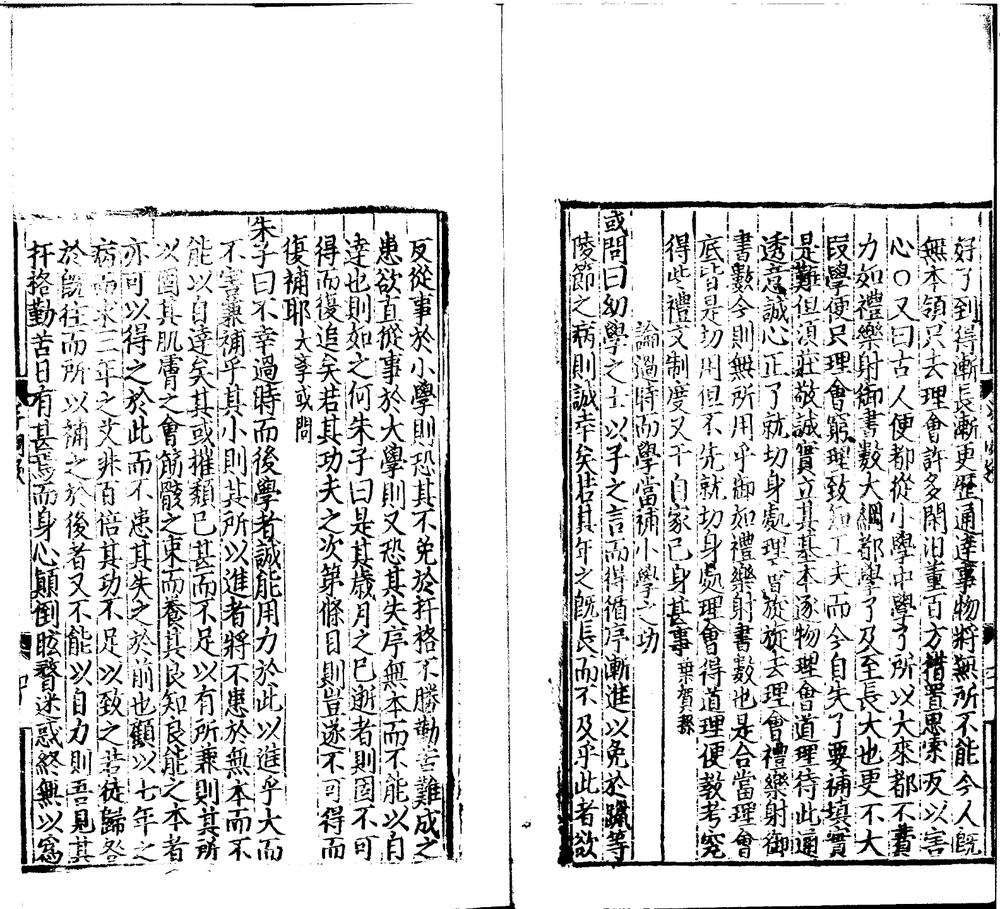 好了到得漸長漸更歷通達事物將無所不能今人旣
無本領只去理會許多閑汩董百方措置思索反以害
心○又曰古人便都從小學中學了所以大來都不費
力如禮樂射御書數大綱都學了及至長大也更不大
段學便只理會窮理致知工夫而今自失了要補填實
是難但須莊敬誠實立其基本逐物理會道理待此通
透意誠心正了就切身處理會旋旋去理會禮樂射御
書數今則無所用乎御如禮樂射書數也是合當理會
底皆是切用但不先就切身處理會得道理便教考究
得些禮文制度又干自家已身甚事葉賀孫
論過時而學當補小學之功
或問曰幼學之士以子之言而得循序漸進以免於躐等
陵節之病則誠幸矣若其年之旣長而不及乎此者欲
反從事於小學則恐其不免於扞格不勝勤苦難成之
患欲直從事於大學則又恐其失序無本而不能以自
達也則如之何朱子曰是其歲月之已逝者則固不可
得而復追矣若其功夫之次第條目則豈遂不可得而
復補耶大學或問
朱子曰不幸過時而後學者誠能用力於此以進乎大而
不害兼補乎其小則其所以進者將不患於無本而不
能以自達矣其或摧頹已甚而不足以有所兼則其所
以固其肌膚之會筋骸之束而養其良知良能之本者
亦可以得之於此而不患其失之於前也顧以七年之
病而求三年之艾非百倍其功不足以致之若徒歸咎
於旣往而所以補之於後者又不能以自力則吾見其
扞格勤苦日有甚焉而身心顛倒眩瞀迷惑終無以爲